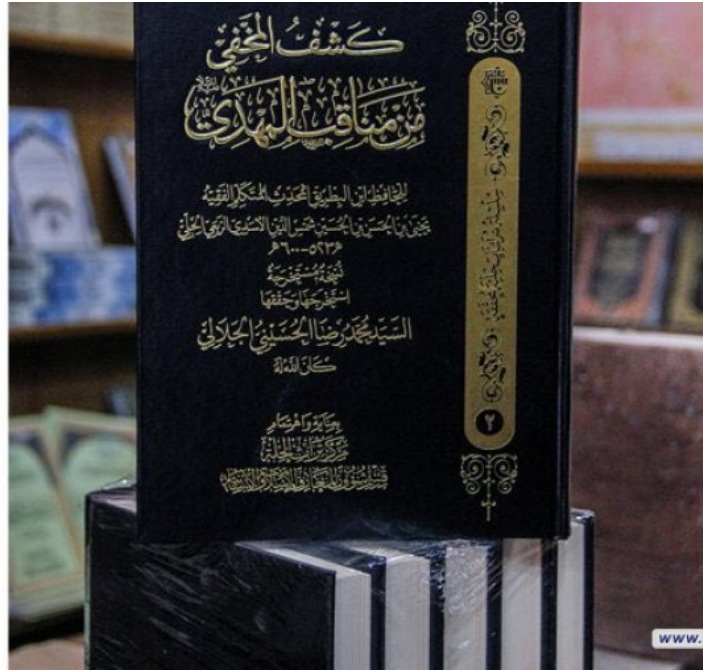 كَشْفُ المَخْفِيّ
مِنْ مَنَاقِبِ المَهْدِيّ
للحافظ ابن البطريق المحدث المتكلم الفقيه
يحيى بن الحسن بن الحسين بن الأسدي الربعي الحلي
٥٢٣ - ٦٠٠هـ
نسخة مستخرجة
استخرجها وحققها
السيد محمد رضا الحسيني الجلالي
كان الله له
بعناية واهتمام
مركز تراث الحلة
قسم شؤون المعارف الإسلامية والإنسانية
سلسلة تراث
٢
www.